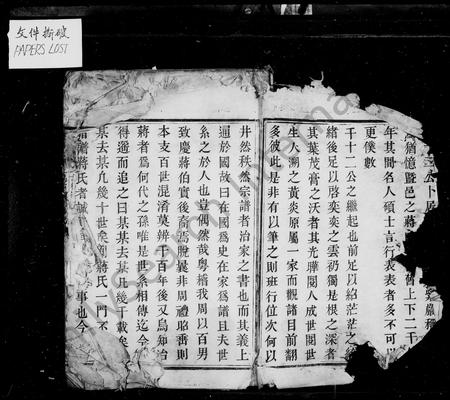 文件撕破
PAPERS LOST
三公卜居
猶憶暨邑之蔣
舊上下二千
年其間名人碩士言行表表者多不可以
更僕數
千十二公之繼起也前足以紹茫茫之
緒後足以啓奕奕之雲礽獨是根之深者
其葉茂膏之沃者其光曄閱人成世閱世
生人溯之黃炎原屬一家而觀諸目前翻
多彼此是非有以筆之則班行位次何以
井然秩然宗譜者治家之書也而其義上
通於國故曰在國爲史在家爲譜且夫世
系之於人也豈偶然哉粵稽我周以百男
致慶蔣伯實後裔焉脫曩非周禮昭垂則
本支百世混淆莫辨千百年後又烏知治
蔣者爲何代之孫唯是世系相傳迄今
得邇而追之曰某某去某凡幾千載矣
某去某凡幾十世矣則蔣氏一門不
譜蔣氏者
事也今